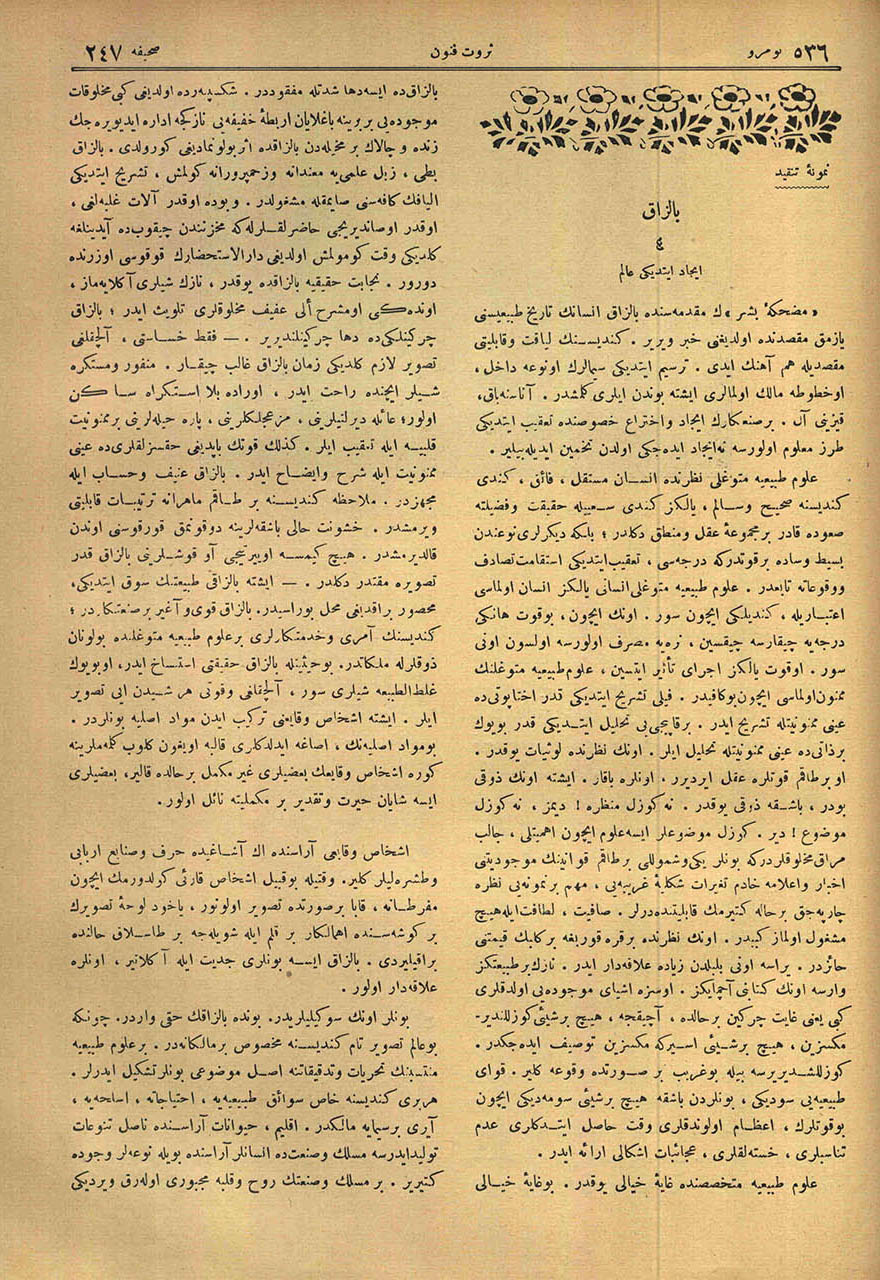 ٥٣٦ نومرو
ثروت فنون
صحیفه ٢٤٧
نمونهٔ تنقید
بالزاق
٤
ایجاد ایتدیکی عالم
« مضحكهٔ بشر » ك مقدمه‌سنده بالزاق انسانك تاریخ طبیعیسنی
یازمق مقصدنده اولدیغنی خبر ویریر . كندیسنك لیاقت وقابلیتی
مقصدیله هم آهنك ایدی . ترسیم ایتدیكی سیمالرك اونوعه داخل ،
اوخطوطه مالك اولمالری ایشته بوندن ایلری كلمشدر . آناسنه‌باق،
قیزینی آل . برصنعتكارك ایجاد واختراع خصوصنده تعقیب ایتدیكی
طرز معلوم اولورسه نه‌ایجاد ایده‌جكی اولدن تخمین ایدیله‌بیلیر .
علوم طبیعیه متوغلی نظرنده انسان مستقل ، فائق ، كندی
كندیسنه صحیح وسالم ، یالكز كندی سعییله حقیقت وفضیلته
صعوده قادر برمجموعهٔ عقل ومنطق دكلدر ؛ بلكه دیكرلری نوعندن
بسیط وساده برقوتدركه درجه‌سی ، تعقیب‌ایتدیكی استقامت‌تصادف
ووقوعاته تابعدر . علوم طبیعیه متوغلی‌انسانی یالكز انسان اولماسی
اعتباریله ، كندیلكی ایچون سور . اونك ایچون ، بوقوت هانكی
درجه‌یه چیقارسه چیقسین ، نره‌یه مصرف اولورسه اولسون اونی
سور . اوقوت یالكز اجرای تأثیر ایتسین ، علوم‌طبیعیه متوغلنك
ممنون‌اولماسی ایچون‌بوكافیدر . فیلی تشریح ایتدیكی قدر اختاپوتی‌ده
عینی ممنونیتله تشریح ایدر . برقاپیجی‌یی تحلیل ایتدیكی قدر بویوك
برذاتی‌ده عینی ممنونیتله تحلیل ایلر . اونك نظرنده لوثیات یوقدر .
او برطاقم قوتلره عقل ایردیرر ، اونلره باقار . ایشته اونك ذوقی
بودر ، باشقه ذوقی یوقدر . نه‌كوزل منظره ! دیمز ، نه‌كوزل
موضوع ! دیر . كوزل موضوعلر ایسه‌علوم ایچون اهمیتلی ، جالب
مراق‌مخلوقلردركه بونلر یكی‌وشموللی برطاقم قوانینك موجودیتنی
اخبار واعلامه خادم تغیرات شكلیهٔ غریبه‌یی ، مهم برنمونه‌یی نظره
چارپه‌جق برحاله كتیرمك قابلیتنده‌درلر . صافیت ، لطافت‌ایله‌هیچ
مشغول اولماز كبیدر . اونك نظرنده برقره قوربغه بركلبك قیمتنی
حائزدر . یراسه اونی بلبلدن زیاده علاقه‌دار ایدر . نازك‌برطبیعتكز
وارسه اونك كتابنی آچمایكز . اوسزه اشیای موجوده‌یی اولدقلری
كبی یعنی غایت چركین برحالده ، آچیقجه ، هیچ برشیئی‌كوزللندیر-
مكسزین ، هیچ برشیئی اسیركه‌مكسزین توصیف ایده‌جكدر .
كوزللشدیریرسه بیله بوغریب بر صورتده وقوعه كلیر . قوای
طبیعیه‌یی سودیكی ، بونلردن باشقه هیچ برشیئی سومه‌دیكی ایچون
بوقوتلرك ، اعظام اولوندقلری وقت حاصل ایتدكلری عدم
تناسبلری ، خسته‌لقلری ، عجائبات اشكالی ارائه ایدر .
علوم طبیعیه متخصصنده غایهٔ خیالی یوقدر . بوغایهٔ خیالی
بالزاق‌ده ایسه‌دها شدتله مفقوددر . شكسپه‌رده اولدیغی كبی مخلوقات
موجوده‌یی بر برینه باغلایان اربطهٔ خفیفه‌یی نازكجه اداره ایدیویره‌جك
زنده و چالاك بر مخیله‌دن بالزاقده اثربولونمادیغی كورولدی . بالزاق
بطی ، زبل علمی‌یه معندانه وزحمپرورانه كولمش ، تشریح ایتدیكی
الیافك كافه‌سنی صایمقله مشغولدر . وبوده اوقدر آلات غلبه‌لغی ،
اوقدر اوصاندیریجی حاضرلقلرله‌كه مخزنندن چیقوب‌ده آیدینلغه
كلدیكی وقت كومولمش اولدیغی دارالاستحضارك قوقوسی اوزرنده
دورور . نجابت حقیقیه بالزاقده یوقدر ، نازك شیلری آكلایه‌ماز ،
اونده‌كی اومشرح ألی عفیف مخلوقلری تلویث ایدر ؛ بالزاق
چركینلكی‌ده دها چركینلندیریر . — فقط خساستی ، آلچقلغی
تصویر لازم كلدیكی زمان بالزاق غالب چیقار . منفور ومستكره
شیلر ایچنده راحت ایدر ، اوراده بلا استكراه ساكن
اولور؛ عائله دیرلتیلرینی ، مزعجلكلرینی ، پاره حیله‌لرینی برممنونیت
قلبیه ایله تعقیب ایلر . كذلك قوتك یاپدیغی حقسزلقلری‌ده عینی
ممنونیت ایله شرح وایضاح ایدر . بالزاق عنیف وحساب ایله
مجهزدر . ملاحظه كندیسنه بر طاقم ماهرانه ترتیبات قابلیتی
ویرمشدر . خشونت حالی باشقه‌لرینه دوقونمق قورقوسنی اوندن
قالدیرمشدر . هیچ كیمسه اوییرتیجی آو قوشلرینی بالزاق قدر
تصویره مقتدر دكلدر . — ایشته بالزاقی طبیعتنك سوق ایتدیكی،
محصور براقدیغی محل بوراسیدر. بالزاق قوی‌و آغیر برصنعتكاردر ؛
كندیسنك آمری وخدمتكارلری برعلوم طبیعیه متوغلنده بولونان
ذوقلرله ملكاتدر. بوحیثیتله بالزاق حقیقتی استنساخ ایدر، اوبویوك
غلط‌الطبیعه شیلری سور ، آلچقلغی وقوتی هر شیدن ایی تصویر
ایلر . ایشته اشخاص وقایعنی تركیب ایدن مواد اصلیه بونلردر .
بومواد اصلیه‌نك ، اصاغه ایدلدكلری قالبه اویغون كلوب كلمه‌ملرینه
كوره اشخاص وقایعك بعضیلری غیر مكمل برحالده قالیر، بعضیلری
ایسه شایان حیرت وتقدیر بر مكملیته نائل اولور .
اشخاص وقایعی آراسنده اك آشاغیده حرف وصنایع اربابی
وطشره‌لیلر كلیر. وقتیله بوقبیل اشخاص قارئی كولدورمك ایچون
مفرطانه ، قابا برصورتده تصویر اولونور ، یاخود لوحهٔ تصویرك
بر كوشه‌سنده اهمالكار بر قلم ایله شویله‌جه بر طاسلاق حالنده
براقیلیردی . بالزاق ایسه بونلری جدیت ایله آكلاتیر ، اونلره
علاقه‌دار اولور .
بونلر اونك سوكیلیلریدر. بونده بالزاقك حقی واردر. چونكه
بوعالم تصویر تام كندیسنه مخصوص برمالكانه‌در . برعلوم طبیعیه
منتسبنك تحریات وتدقیقاتنه اصل موضوعی بونلرتشكیل ایدرلر .
هربری كندیسنه خاص سوائق طبیعیه‌یه ، احتیاجاته ، اسلحه‌یه ،
آیری برسیمایه مالكدر . اقلیم ، حیوانات آراسنده ناصل تنوعات
تولیدایدرسه مسلك وصنعت‌ده انسانلرآراسنده بویله نوعه‌لر وجوده
كتیریر . بر مسلك وصنعتك روح وقلبه مجبوری اوله‌رق ویردیكی